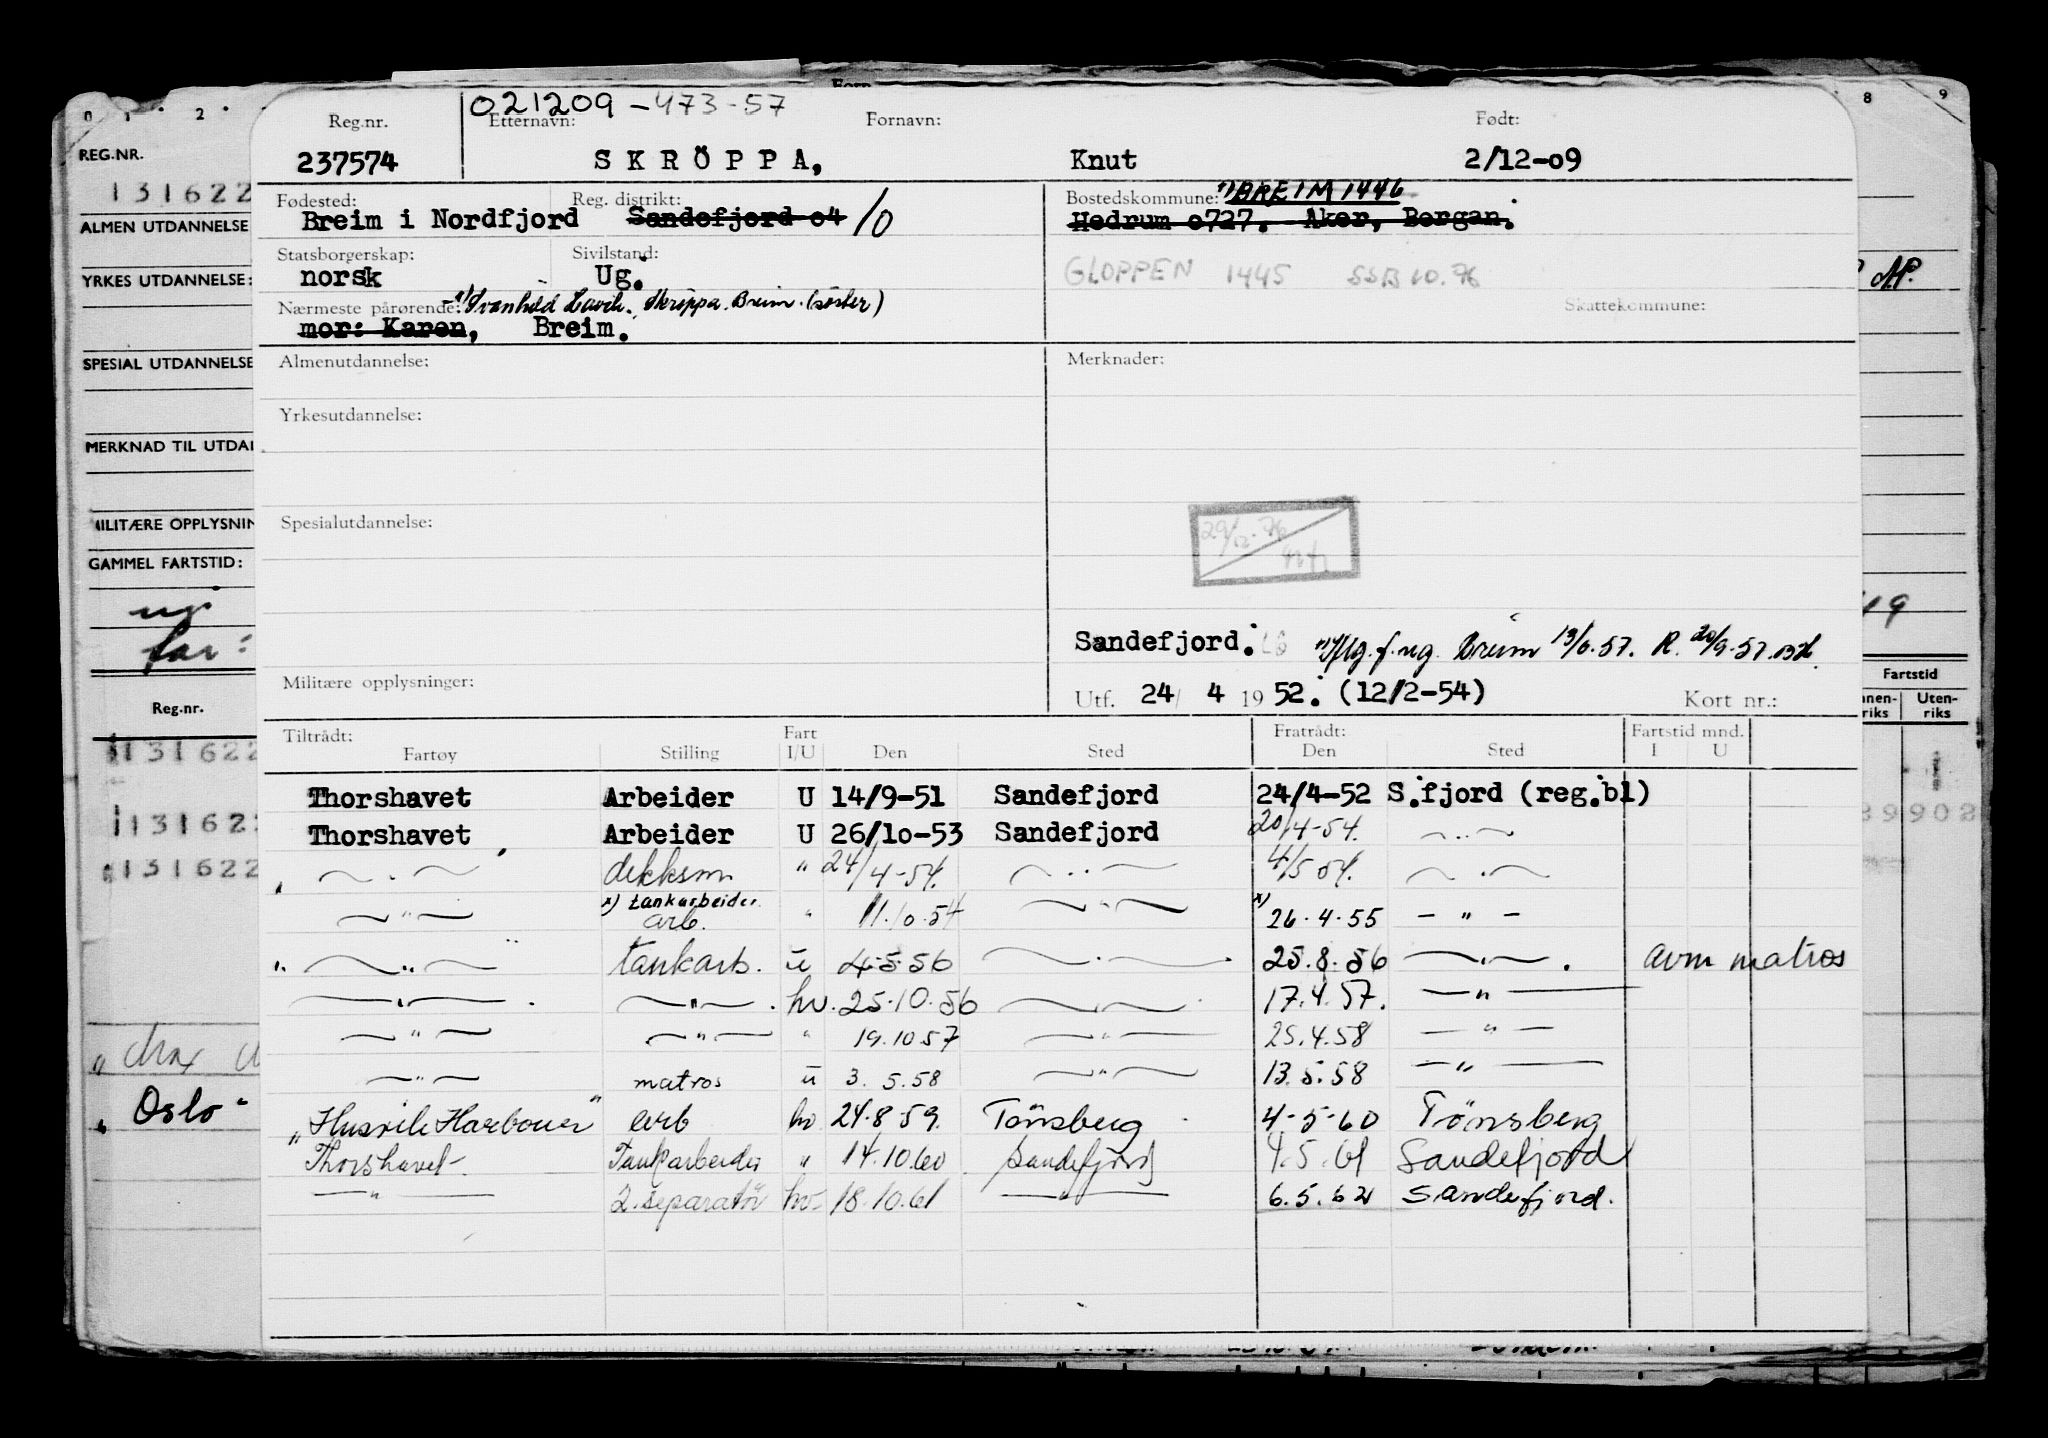 0 1 2 8 9
021209-473-57
REG.NR.
131622
ALMEN UTDANNELSE
YRKES UTDANNELSE:
SPESIAL UTDANNELSE
MERKNAD TIL UTDAN
MILITÆRE OPPLYSNIN
GAMMEL FARTSTID:
ug.
far:
Reg.nr.
131622
131622
131622
Oslo
Fartstid
Uten-
riks
Reg.nr. Etternavn: Fornavn: Født:
237574 SKRÖPPA, Knut 2/12-09
Fødested: Reg. distrikt: Bostedskommune: x) BREIM 1446
Breim i Nordfjord Sandefjord o4 /0 Hedrum o727. Aker, Bergan.
Statsborgerskap: Sivilstand:
norsk Ug. GLOPPEN 1445 SSB 10.76
Nærmeste pårørende: Skrøppa. Breim. (søster) Skattekommune:
mor: Karen, Breim.
Almenutdannelse: Merknader:
Yrkesutdannelse:
Spesialutdannelse:
Sandefjord. Breim 13/6.57. R. 20/9-57.
Militære opplysninger: Utf. 24/ 4 1952. (12/2-54) Kort nr.:
Tiltrådt: Fart Fratrådt: Fartstid mnd.
Fartøy Stilling I/U Den Sted Den Sted I U
Thorshavet Arbeider U 14/9-51 Sandefjord 24/4-52 S.fjord (reg.bl)
Thorshavet Arbeider U 26/10-53 Sandefjord 20/4-54. — " —
" — " — dekksm " 24/4-54. — " — 4/5 54. — " —
x) tankarbeider
— " — arb. " 11.10.54 — " — x) 26.4.55 — " —
" — " — tankarb. u 4.5.56 — " — 25.8.56 — " — . avm matros
— " — . — " — . hv. 25.10.56 — " — 17.4.57. — " —
— " — — " — " 19.10.57 — " — 25.4.58 — " —
— " — matros u 3.5.58 — " — 13.5.58 — " —
"Husvik Harbour" arb hv 24.8.59. Tönsberg 4-5-60 Tönsberg
Thorshavet Tankarbeider " 14.10.60 Sandefjord 4.5.61 Sandefjord
— " — 2. separatör hv- 18.10.61 — " — 6.5.62 Sandefjord.